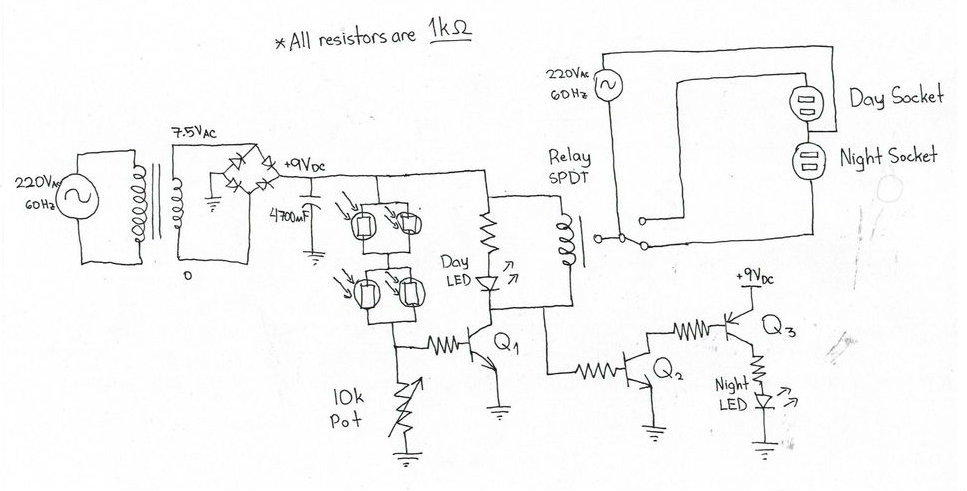 *All resistors are 1kΩ
220VAC
60Hz
7.5VAC
0
+9VDC
4700uF
10k
Pot
Day
LED
Q1
Relay
SPDT
220VAC
60Hz
Day Socket
Night Socket
Q2
+9VDC
Q3
Night
LED